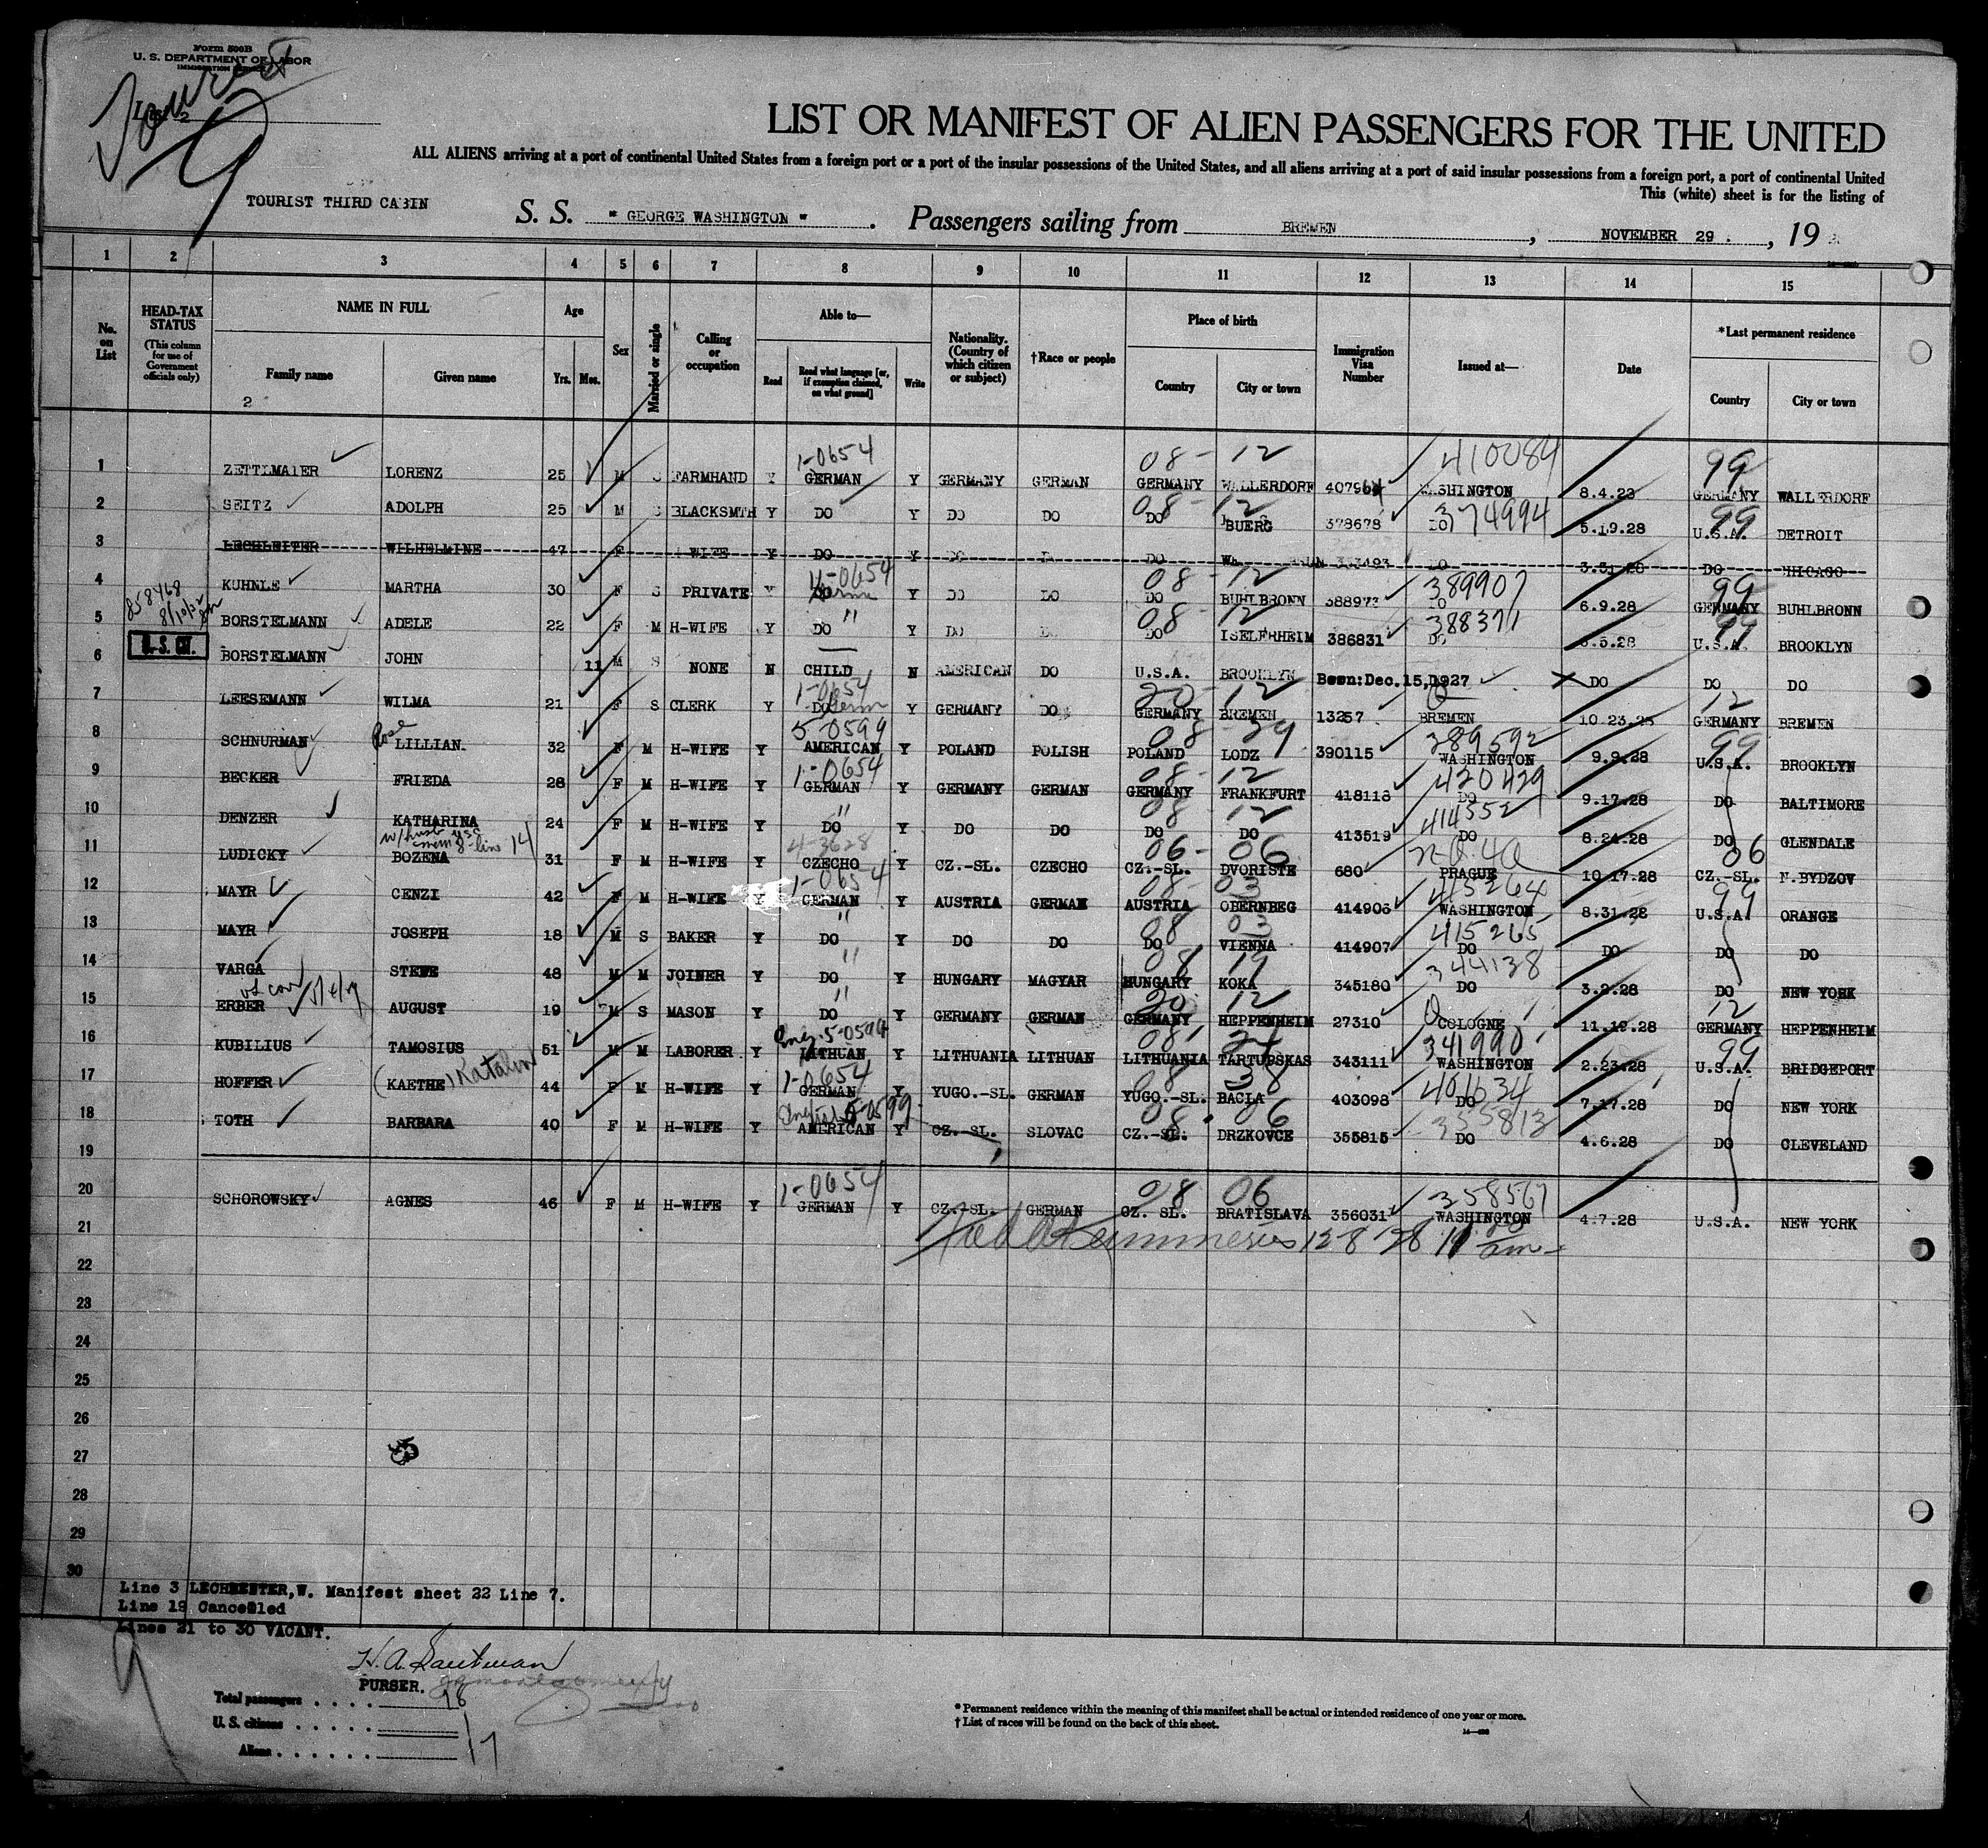 Form 500B
U. S. DEPARTMENT OF LABOR
IMMIGRATION SERVICE
Tourist
9
LIST OR MANIFEST OF ALIEN PASSENGERS FOR THE UNITED
ALL ALIENS arriving at a port of continental United States from a foreign port or a port of the insular possessions of the United States, and all aliens arriving at a port of said insular possessions from a foreign port, a port of continental United
This (white) sheet is for the listing of
TOURIST THIRD CABIN S. S. " GEORGE WASHINGTON " . Passengers sailing from BREMEN , NOVEMBER 29 . , 19
1 2 3 4 5 6 7 8 9 10 11 12 13 14 15
No. on List HEAD-TAX STATUS (This column for use of Government officials only) NAME IN FULL Family name Given name Age Yrs. Mos. Sex Married or single Calling or occupation Able to— Read Read what language [or, if exemption claimed, on what ground] Write Nationality. (Country of which citizen or subject) †Race or people Place of birth Country City or town Immigration Visa Number Issued at— Date *Last permanent residence Country City or town
2
1-0654 08-12 410084 99
1 ZETTLMAIER LORENZ 25 M S FARMHAND Y GERMAN Y GERMANY GERMAN GERMANY WALLERDORF WASHINGTON 8.4.28 GERMANY WALLERDORF
08-12 374994 99
2 SEITZ ADOLPH 25 M S BLACKSMTH Y DO Y DO DO DO BUERG 378678 DO 5.19.28 U.S.A. DETROIT
3 LECHLEITER WILHELMINE 47 F WIFE Y DO Y DO DO DO DO DO CHICAGO
08-12 389907 99
4 KUHNLE MARTHA 30 F S PRIVATE Y DO Y DO DO DO BUHLBRONN DO 6.9.28 GERMANY BUHLBRONN
858468 8/10/32
" 08-12 388371 99
5 BORSTELMANN ADELE 22 F M H-WIFE Y DO Y DO DO DO ISELERHEIM 386831 DO U.S.A. BROOKLYN
U.S. CIT.
6 BORSTELMANN JOHN 11 M S NONE N CHILD N AMERICAN DO U.S.A. BROOKLYN Born:Dec.15,1927 DO DO DO
1-0654 20-12 0 12
7 LEESEMANN WILMA 21 F S CLERK Y DO Y GERMANY DO GERMANY BREMEN 13257 BREMEN GERMANY BREMEN
Rose 5-0599 08-29 389592 99
8 SCHNURMAN LILLIAN 32 F M H-WIFE Y AMERICAN Y POLAND POLISH POLAND LODZ 390115 WASHINGTON 9.9.28 U.S.A. BROOKLYN
1-0654 08-12 420429
9 BECKER FRIEDA 28 F M H-WIFE Y GERMAN Y GERMANY GERMAN GERMANY FRANKFURT 418118 DO 9.17.28 DO BALTIMORE
" 08-12 414552
10 DENZER KATHARINA 24 F M H-WIFE Y DO Y DO DO DO DO 413519 DO 8.24.28 DO GLENDALE
4-3628 06-06 06
11 LUDICKY BOZENA 31 F M H-WIFE Y CZECHO Y CZ.-SL. CZECHO CZ.-SL. DVORISTE 680 PRAGUE 10.17.28 CZ.-SL. N.BYDZOV
1-0654 08-03 415264 99
12 MAYR CENZI 42 F M H-WIFE Y GERMAN Y AUSTRIA GERMAN AUSTRIA OBERNBEG 414906 WASHINGTON 8.31.28 U.S.A. ORANGE
" 08 03 415265
13 MAYR JOSEPH 18 M S BAKER Y DO Y DO DO DO VIENNA 414907 DO DO DO DO
" 08 19 344138
14 VARGA STEVE 48 M M JOINER Y DO Y HUNGARY MAGYAR HUNGARY KOKA 345180 DO 3.2.28 DO NEW YORK
" 20 12 0 12
15 ERBER AUGUST 19 M S MASON Y DO Y GERMANY GERMAN GERMANY HEPPENHEIM 27310 COLOGNE 11.12.28 GERMANY HEPPENHEIM
Eng. 5-0599 08 24 341990 99
16 KUBILIUS TAMOSIUS 51 M M LABORER Y LITHUAN Y LITHUANIA LITHUAN LITHUANIA TARTUPSKAS 343111 WASHINGTON 2.23.28 U.S.A. BRIDGEPORT
Katalin 1-0654 08 38 401634
17 HOFFER (KAETHE) 44 F M H-WIFE Y GERMAN Y YUGO.-SL. GERMAN YUGO.-SL. BACLA 403098 DO 7.17.28 DO NEW YORK
English 5-0599 08 06 355813
18 TOTH BARBARA 40 F M H-WIFE Y AMERICAN Y CZ.-SL. SLOVAC CZ.-SL. DRZKOVCE 355815 DO 4.6.28 DO CLEVELAND
19
1-0654 08 06 358567
20 SCHOROWSKY AGNES 46 F M H-WIFE Y GERMAN Y CZ.-SL. GERMAN CZ. SL. BRATISLAVA 356031 WASHINGTON 4.7.28 U.S.A. NEW YORK
21 12-8-28
22
23
24
25
26
27
28
29
30
Line 3 LECHLEITER,W. Manifest sheet 22 Line 7.
Line 19 Cancelled
Lines 21 to 30 VACANT.
9
PURSER.
Total passengers . . . . 18
U. S. citizens . . . . . 1
Aliens . . . . . . 17
* Permanent residence within the meaning of this manifest shall be actual or intended residence of one year or more.
† List of races will be found on the back of this sheet.